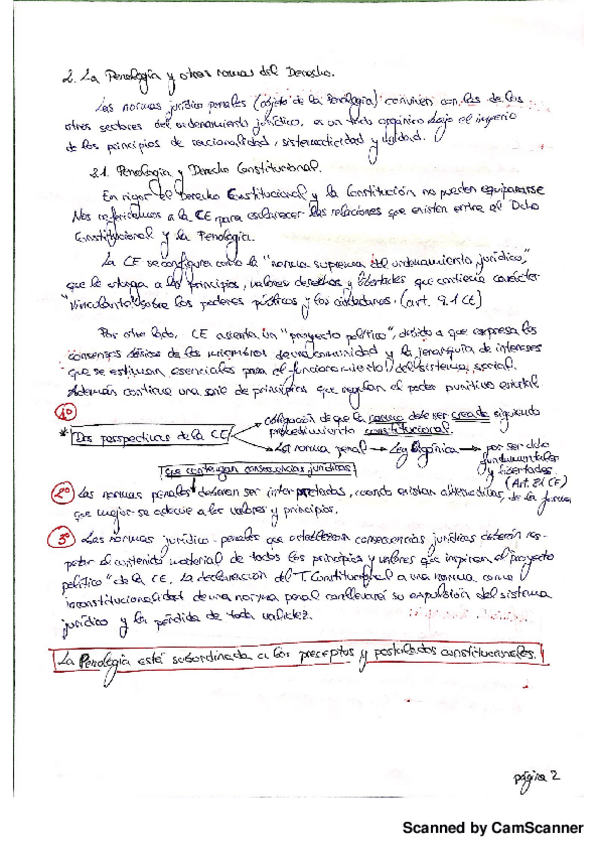 2. La Penología y otras ramas del Derecho.
Las normas jurídico penales (objeto de la Penología) conviven con las de los
otros sectores del ordenamiento jurídico, es un todo orgánico bajo el ingenio
de los principios de racionalidad, sistematicidad y unidad.
2.1. Penología y Derecho Constitucional.
En rigor el Derecho Constitucional y la Constitución no pueden equipararse
Nos referiremos a la CE para esclarecer las relaciones que existen entre el Dcho
Constitucional y la Penología.
La CE se configura como la "norma suprema del ordenamiento jurídico,"
que le otorga a los principios, valores derechos y libertades que contiene carácter
"vinculante" sobre los poderes públicos y los ciudadanos. (art. 9.1 CE)
Por otro lado, CE asienta un "proyecto político", debido a que expresa los
consensos básicos de los miembros de una comunidad y la jerarquía de intereses
que se estiman esenciales para el funcionamiento del sistema social.
Además contiene una serie de principios que regulan el poder punitivo estatal
1º
* Dos perspectivas de la CE
obligación de que la norma debe ser creada siguiendo
procedimiento constitucional.
La norma penal → Ley Orgánica → por ser dcho
fundamentales
y libertades.
(Art. 81 CE)
que contengan consecuencias jurídicas
2º Las normas penales deberán ser interpretadas, cuando existan alternativas, de la forma
que mejor se adecue a los valores y principios.
3º Las normas jurídico-penales que establezcan consecuencias jurídicas deberán res-
petar el contenido material de todos los principios y valores que inspiran el "proyecto
político" de la CE. La declaración del T. Constitucional a una norma como
inconstitucionalidad de una norma penal conllevará su expulsión del sistema
jurídico y la pérdida de toda validez.
La Penología está subordinada a los preceptos y postulados constitucionales.
página 2
Scanned by CamScanner